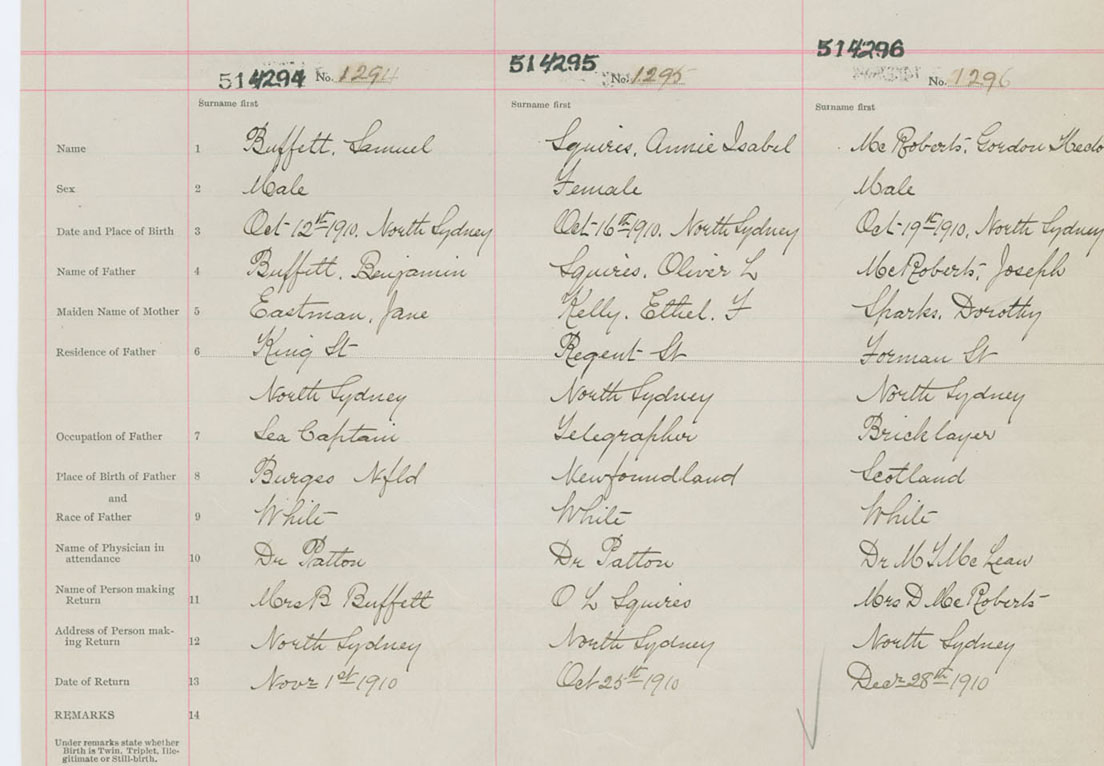 514294 No. 1294 514295 No. 1295 514296 No. 1296
Surname first Surname first Surname first
Name 1 Buffett, Samuel Squires, Annie Isabel Mc Roberts, Gordon
Sex 2 Male Female Male
Date and Place of Birth 3 Oct 12th 1910, North Sydney Oct 16th 1910, North Sydney Oct 19th 1910, North Sydney
Name of Father 4 Buffett, Benjamin Squires, Oliver L Mc Roberts, Joseph
Maiden Name of Mother 5 Eastman, Jane Kelly, Ethel. F Sparks, Dorothy
Residence of Father 6 King St Regent St Forman St
North Sydney North Sydney North Sydney
Occupation of Father 7 Sea Captain Telegrapher Bricklayer
Place of Birth of Father 8 Burgeo Nfld Newfoundland Scotland
and
Race of Father 9 White White White
Name of Physician in
attendance 10 Dr Patton Dr Patton Dr M T Mc Lean
Name of Person making
Return 11 Mrs B Buffett O L Squires Mrs D Mc Roberts
Address of Person mak-
ing Return 12 North Sydney North Sydney North Sydney
Date of Return 13 Novr 1st 1910 Oct 25th 1910 Decr 28th 1910
REMARKS 14
Under remarks state whether
Birth is Twin, Triplet, Ille-
gitimate or Still-birth.